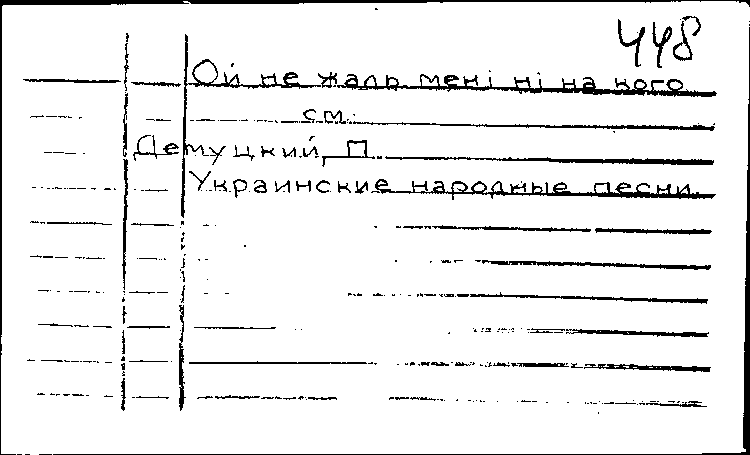 448
Ой не жаль мені ні на кого
см.
Демуцкий, П.
Украинские народные песни.